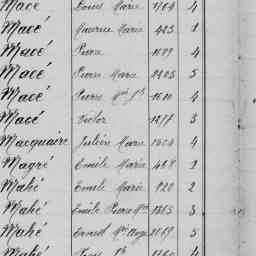 Macé Louis Marie 1764 4
Macé Maurice Marie 423 1
Macé Pierre 1699 4
Macé Pierre Marie 2205 5
Macé Pierre Mie 1610 4
Macé Victor 1277 3
Macquaire Julien Marie 1504 4
Magré Emile Marie 468 1
Mahé Emile Marie 720 2
Mahé Emile Pierre Mie 1363 3
Mahé Ernest Mie Ange 2069 5
Mahé 4